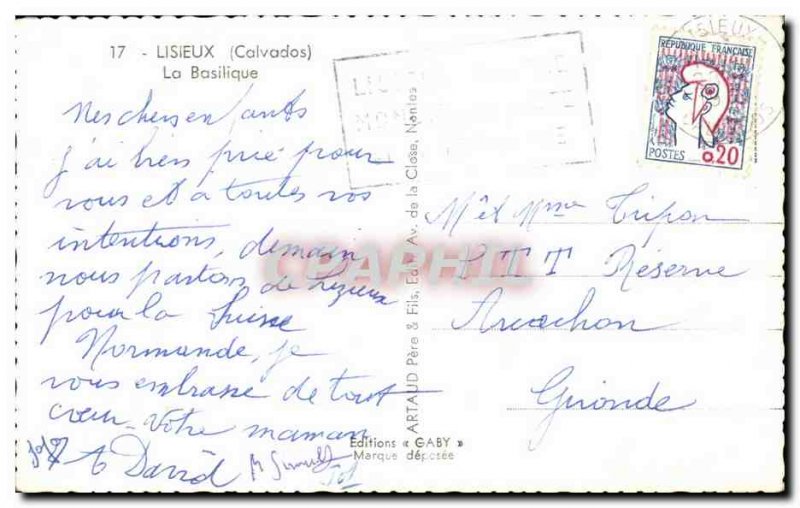 17 - LISIEUX (Calvados)
La Basilique
Mes chers enfants
j'ai bien prié pour
vous et a toutes vos
intentions, demain
nous partons de Lizieux
pour la Suisse
Normande, je
vous embrasse de tout
cœur - Votre maman
A David
ARTAUD Père & Fils, Edit. Av. de la Close, Nantes
Editions « GABY »
Marque déposée
LISIEUX
REPUBLIQUE FRANÇAISE
POSTES 0,20
Mr et Mme Tripon
P T T Réserve
Arcachon
Gironde
CPAPHIL